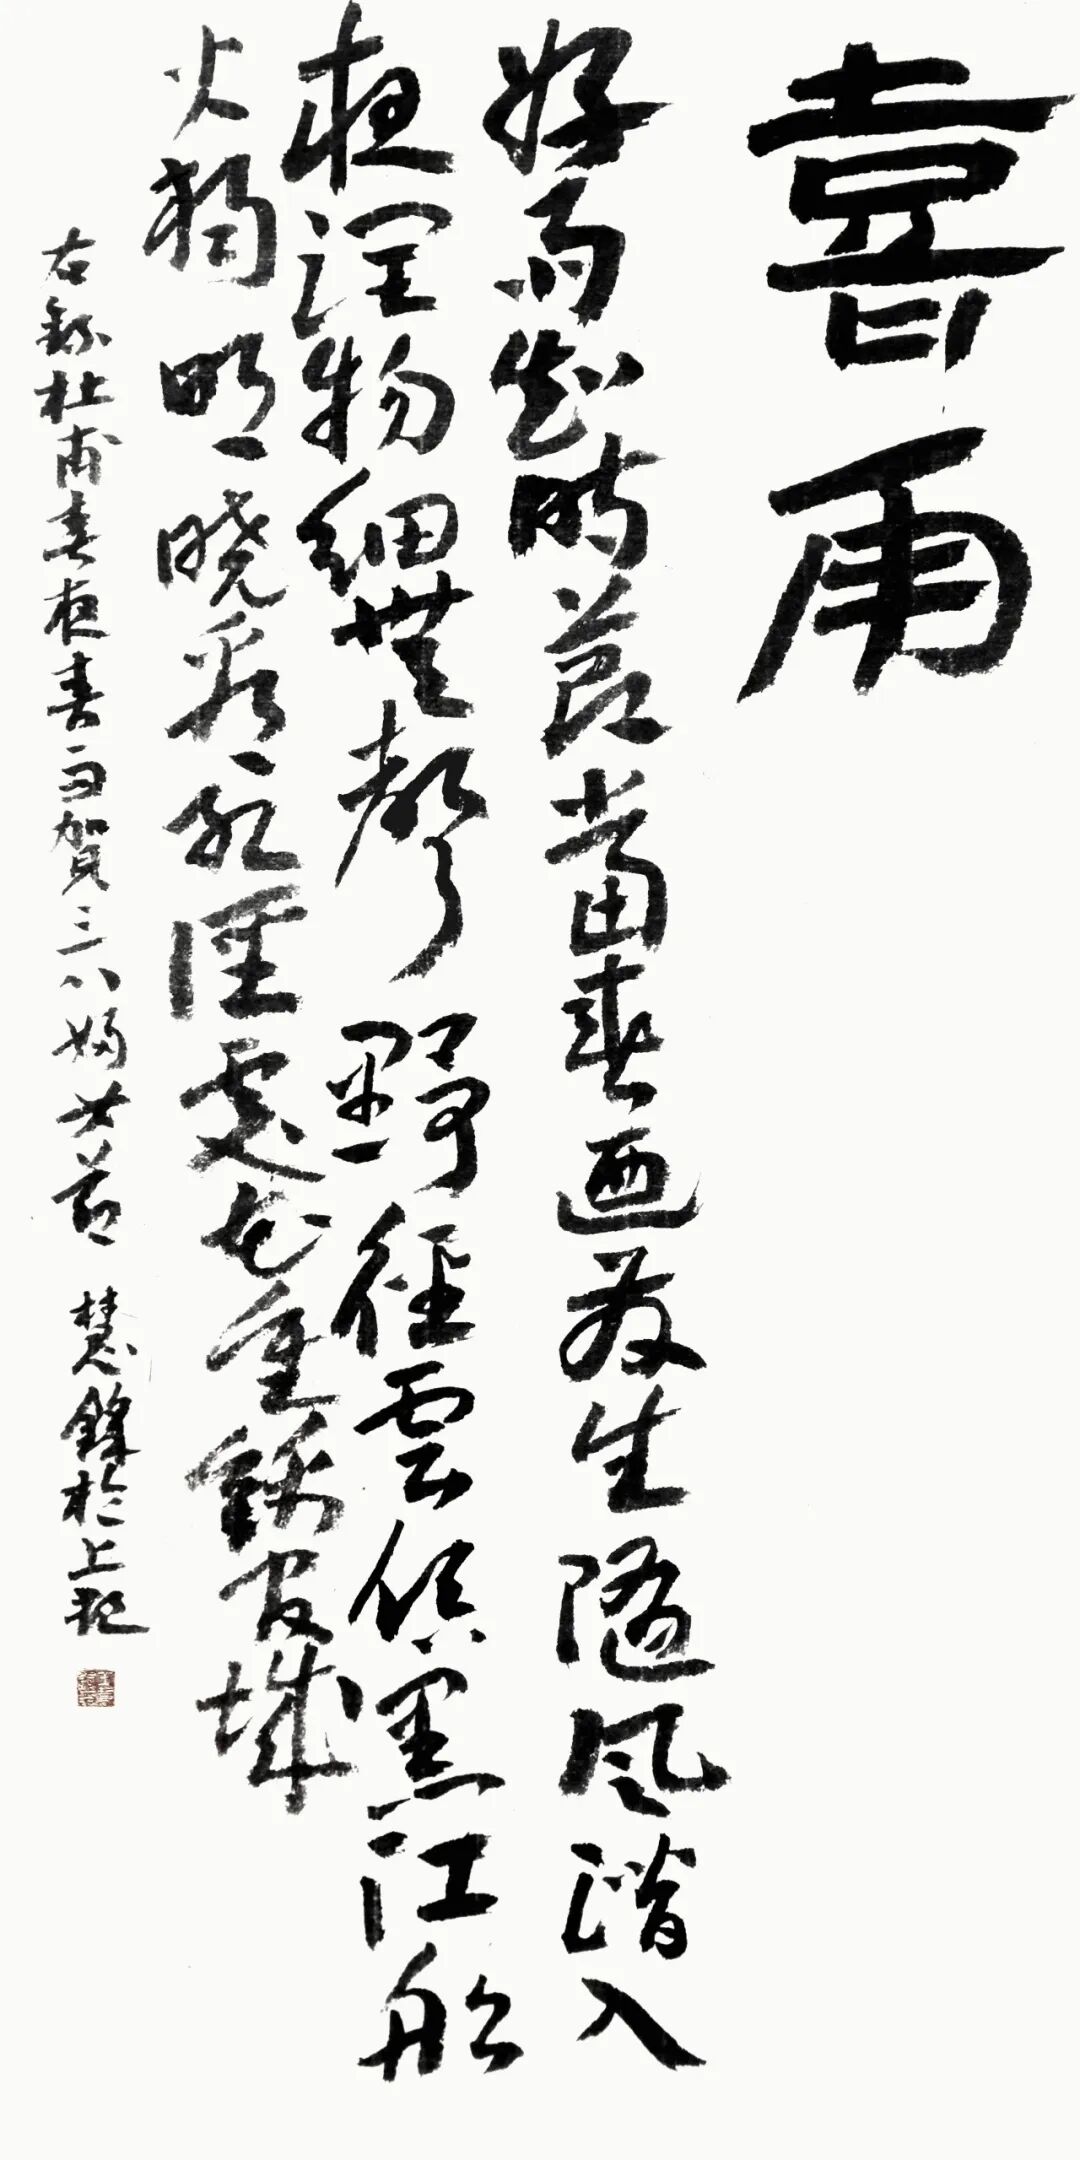 喜雨
好雨知時節當春迺發生隨風潛入
夜潤物細無聲野徑雲俱黑江船
火獨明曉看紅溼處花重錦官城
右錄杜甫春夜喜雨賀三八婦女節 慧鋒於上